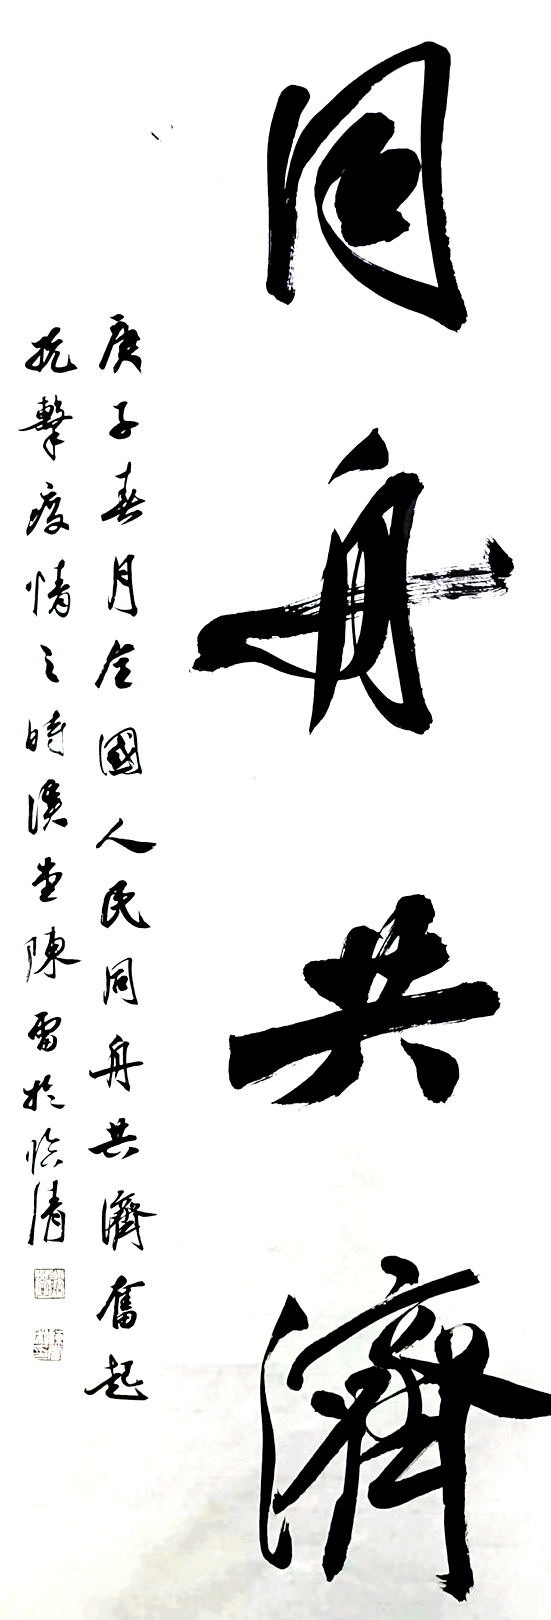 同舟共濟
庚子春月全國人民同舟共濟奮起
抗擊疫情之時漢堂陳雷於臨清